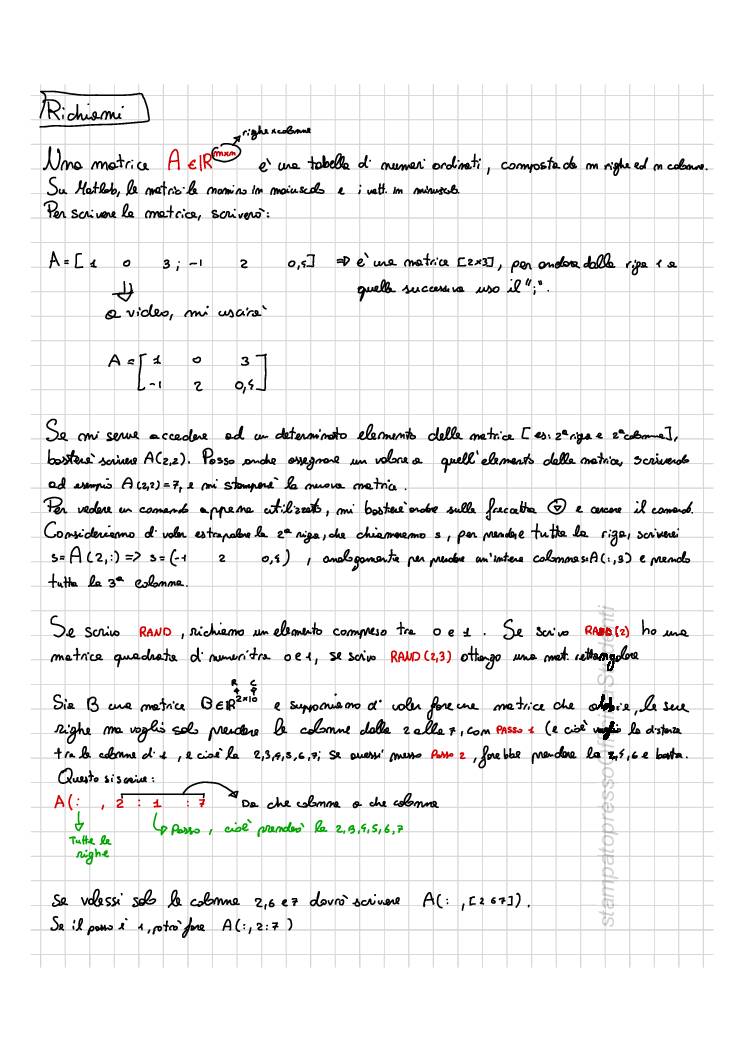 Richiami
righe x colonne
Una matrice A ∈ ℝ^{m×n} è una tabella di numeri ordinati, composta da m righe ed n colonne.
Su Matlab, le matrici le nomino in maiuscolo e i vett. in minuscolo
Per scrivere la matrice, scriverò:
A = [ 1 0 3 ; -1 2 0,5 ] ⇒ è una matrice [2x3], per andare dalla riga 1 a
quella successiva uso il ";".
a video, mi uscirà
A = [ 1 0 3
-1 2 0,5 ]
Se mi serve accedere ad un determinato elemento della matrice [es: 2ª riga e 2ª colonna],
basterà scrivere A(2,2). Posso anche assegnare un valore a quell'elemento della matrice, scrivendo
ad esempio A(2,2)=7, e mi stamperà la nuova matrice.
Per vedere un comando appena utilizzato, mi basterà andare sulla freccetta e cercare il comando.
Consideriamo di voler estrapolare la 2ª riga, che chiameremo s, per prendere tutta la riga, scriverei
s = A(2,:) => s = (-1 2 0,5) , analogamente per prendere un'intera colonna s:A(:,3) e prendo
tutta la 3ª colonna.
Se scrivo RAND, richiamo un elemento compreso tra 0 e 1. Se scrivo RAND(2) ho una
matrice quadrata di numeri tra 0 e 1, se scrivo RAND(2,3) ottengo una mat. rettangolare
R C
Sia B una matrice B ∈ ℝ^{2×10} e supponiamo di voler fare una matrice che abbia le sue
righe ma voglio solo prendere le colonne dalla 2 alla 7, con PASSO 1 (e cioè voglio la distanza
tra le colonne di 1, e cioè la 2,3,4,5,6,7; se avessi messo PASSO 2, farebbe prendere la 2,4,6 e basta.
Questo si scrive:
A(: , 2 : 1 : 7 Da che colonna a che colonna
Tutte le
righe
Passo, cioè prenderò la 2,3,4,5,6,7
Se volessi solo le colonne 2,6 e 7 dovrò scrivere A(: ,[2 6 7]).
Se il passo è 1, potrò fare A(:, 2:7)